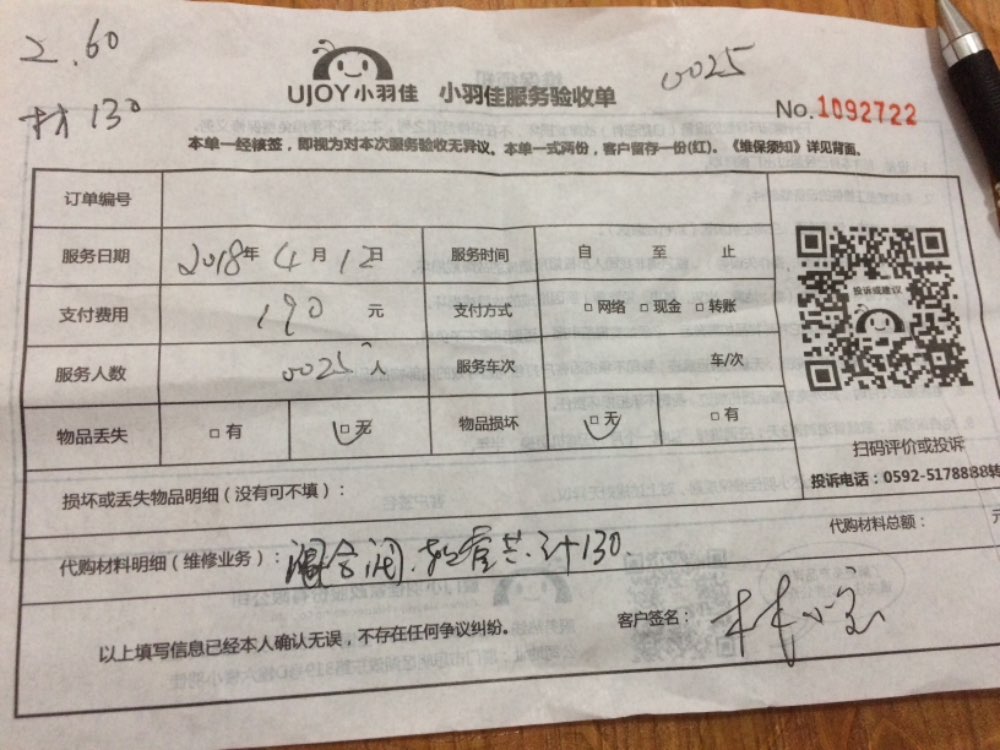 2.60
材130
0025
UJOY小羽佳 小羽佳服务验收单
No.1092722
本单一经核签，即视为对本次服务验收无异议。本单一式两份，客户留存一份(红)。《维保须知》详见背面。
订单编号
服务日期 2018年 4月 12日 服务时间 自 至 止
支付费用 190 元 支付方式 □网络 □现金 □转账
服务人数 0025 人 服务车次 车/次
物品丢失 □有 □无 物品损坏 □无 □有
投诉或建议
扫码评价或投诉
投诉电话：0592-5178888转
损坏或丢失物品明细（没有可不填）：
代购材料总额： 元
代购材料明细（维修业务）： 计130
以上填写信息已经本人确认无误，不存在任何争议纠纷。
客户签名：